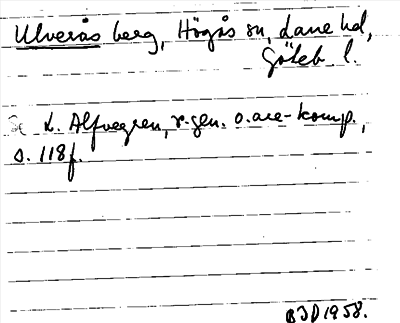 Ulverås berg, Högås sn, Lane hd,
Göteb. l.
Se L. Alfvegren, r-gen. o. are-komp.,
s. 118 f.
BJD 1958.